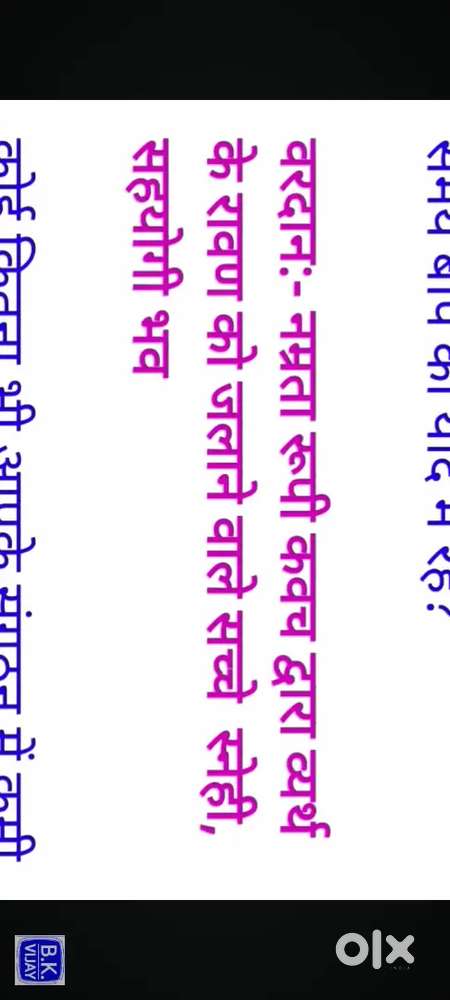 समय बाप की याद में रहे?
वरदान:- नम्रता रूपी कवच द्वारा व्यर्थ
के रावण को जलाने वाले सच्चे स्नेही,
सहयोगी भव
कोई कितना भी आपके संगठन में कमी
B.K.
VIJAY
olx
INDIA